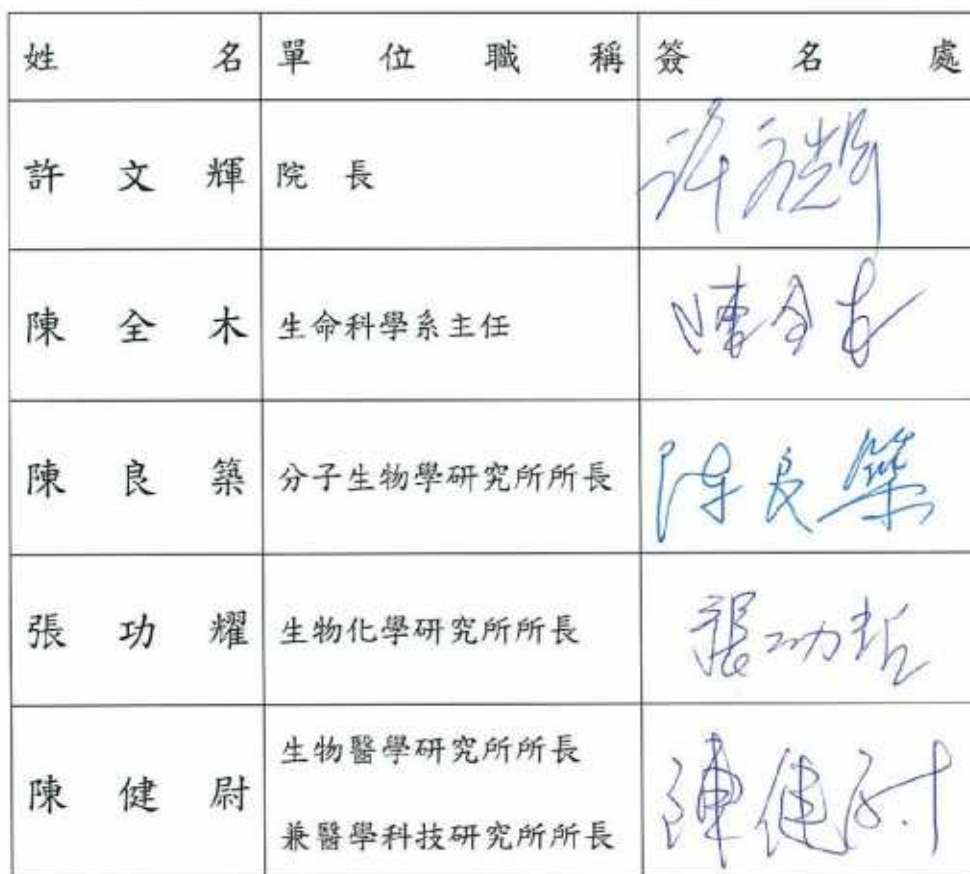 姓名 單位職稱 簽名處
許文輝 院長 許文輝
陳全木 生命科學系主任 陳全木
陳良築 分子生物學研究所所長 陳良築
張功耀 生物化學研究所所長 張功耀
陳健尉 生物醫學研究所所長
兼醫學科技研究所所長 陳健尉